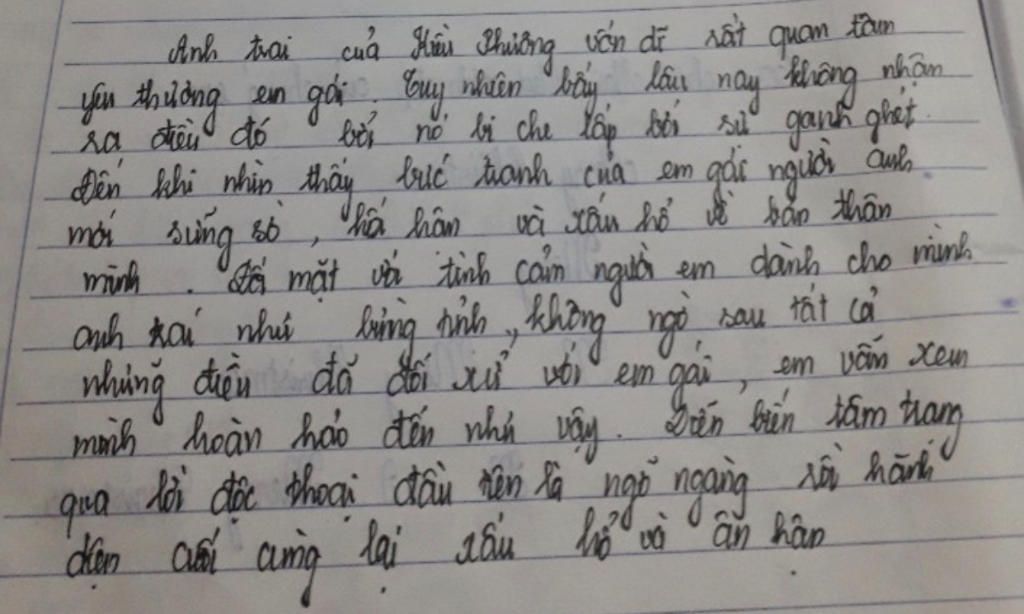 Anh trai của Kiều Phương vốn dĩ rất quan tâm
yêu thương em gái. Tuy nhiên bấy lâu nay không nhận
ra điều đó bởi nó bị che lấp bởi sự ganh ghét.
Đến khi nhìn thấy bức tranh của em gái người anh
mới sững sờ, hối hận và xấu hổ về bản thân
mình. Đối mặt với tình cảm người em dành cho mình
anh trai như bừng tỉnh, không ngờ sau tất cả
những điều đã đối xử với em gái, em vẫn xem
mình hoàn hảo đến như vậy. Diễn biến tâm trạng
qua lời độc thoại đầu tiên là ngỡ ngàng rồi hãnh
diện cuối cùng lại xấu hổ và ân hận